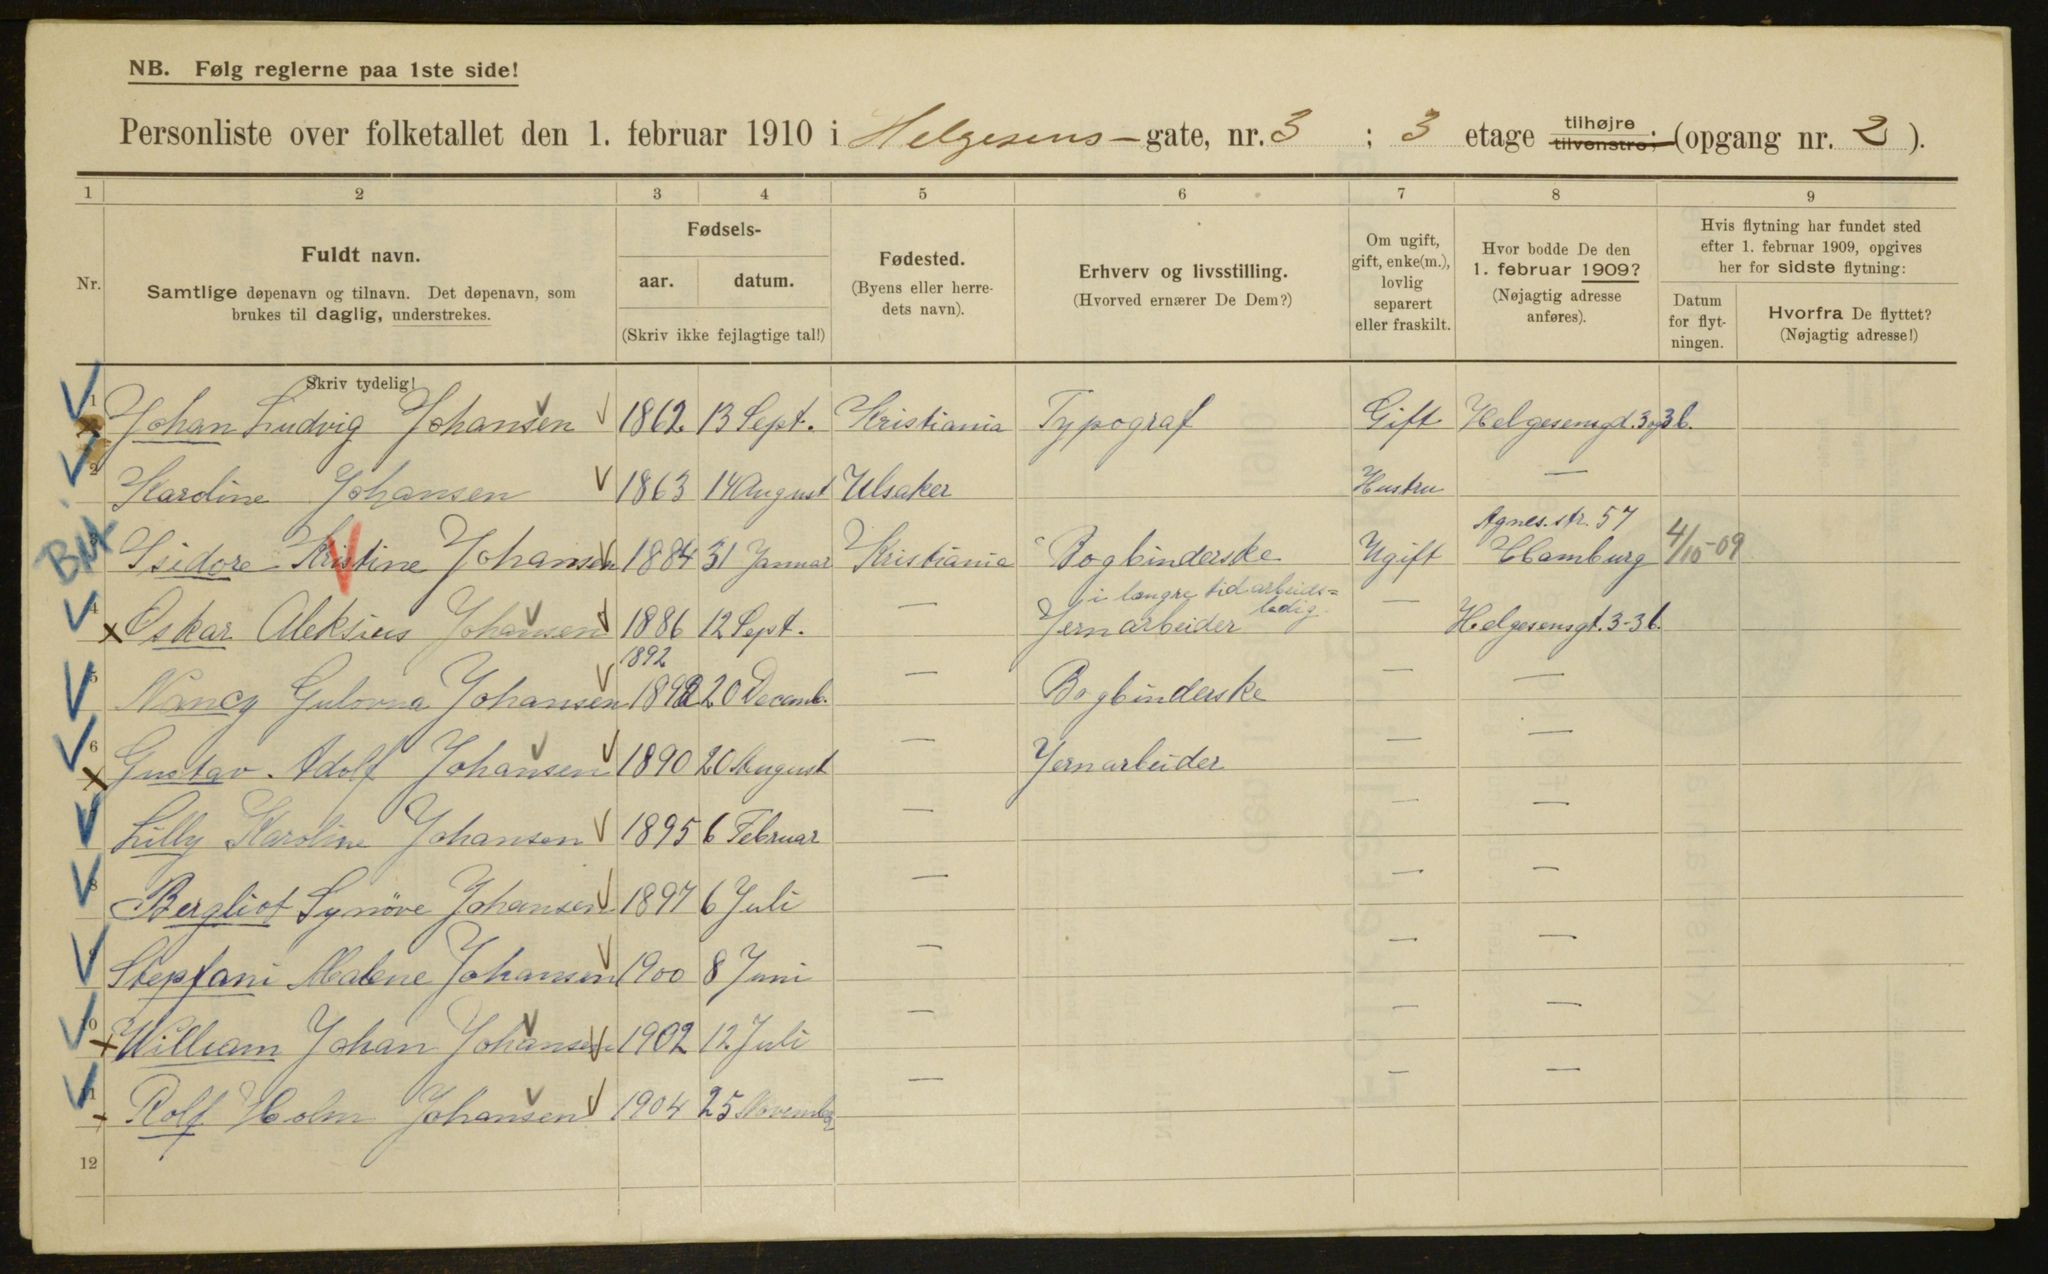 NB. Følg reglerne paa 1ste side!
Personliste over folketallet den 1. februar 1910 i Helgesens-gate, nr. 3 ; 3 etage tilhøjre. tilvenstre, (opgang nr. 2).
1 2 3 4 5 6 7 8 9
Nr.
Fuldt navn.
Samtlige døpenavn og tilnavn. Det døpenavn, som
brukes til daglig, understrekes.
Skriv tydelig!
Fødsels-
aar. datum.
(Skriv ikke fejlagtige tal!)
Fødested.
(Byens eller herre-
dets navn).
Erhverv og livsstilling.
(Hvorved ernærer De Dem?)
Om ugift,
gift, enke(m.),
lovlig
separert
eller fraskilt.
Hvor bodde De den
1. februar 1909?
(Nøjagtig adresse
anføres).
Hvis flytning har fundet sted
efter 1. februar 1909, opgives
her for sidste flytning:
Datum
for flyt-
ningen.
Hvorfra De flyttet?
(Nøjagtig adresse!)
1 Johan Ludvig Johansen 1862 13 Sept. Kristiania Typograf Gift Helgesensgd. 3 og 3b.
2 Karoline Johansen 1863 14 August Ulsaker Hustru —
Agnes. str. 57
3 Isidore Kristine Johansen 1884 31 Januar Kristiania Bogbinderske Ugift Hamburg 4/10-09
i længre tid arbeids=
ledig.
4 Oskar Aleksius Johansen 1886 12 Sept. — Jernarbeider — Helgesensgt. 3-3b.
1892
5 Nancy Gulovna Johansen 1892 20 Decemb. — Bogbinderske — —
6 Gustav Adolf Johansen 1890 20 August — Jernarbeider — —
Lilly Karoline Johansen 1895 6 Februar — — —
8 Bergliot Synöve Johansen 1897 6 Juli — — —
Stepfani Malene Johansen 1900 8 Juni — — —
10 William Johan Johansen 1902 12 Juli — —
11 Rolf Holm Johansen 1904 25 November — — —
12